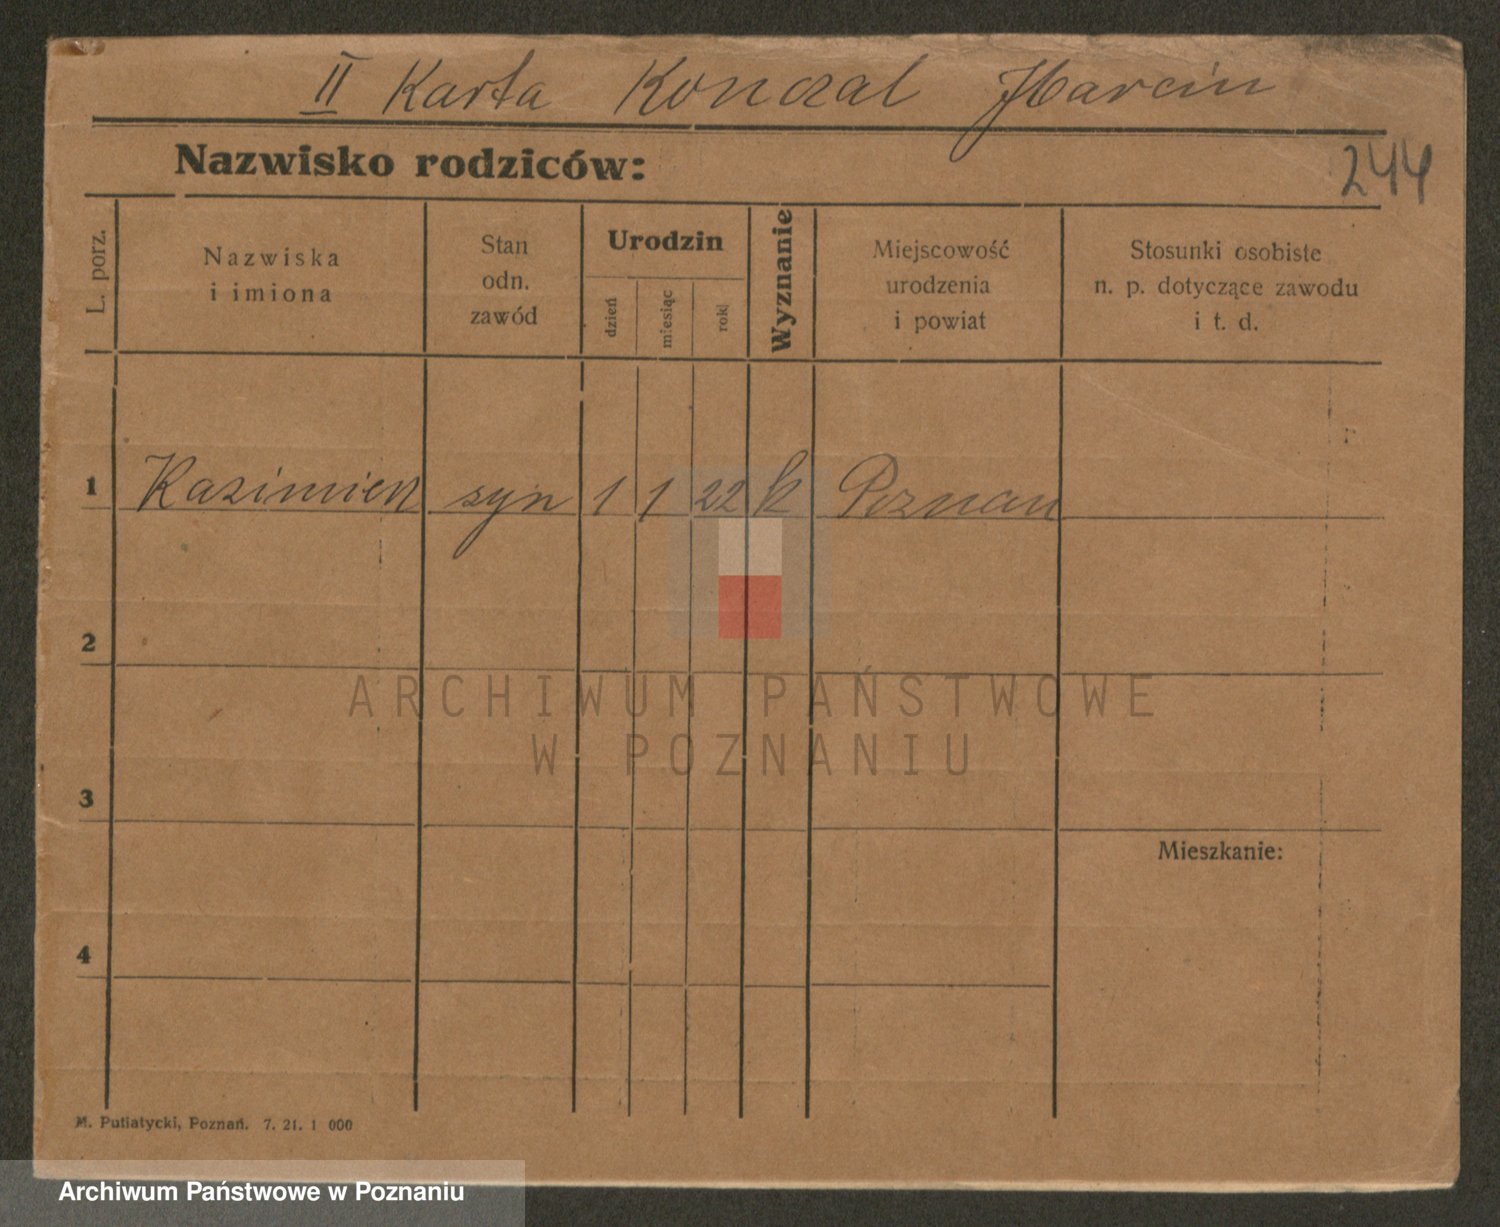 II Karta Konczal Marcin
Nazwisko rodziców:
244
L. porz.
Nazwiska
i imiona
Stan
odn.
zawód
Urodzin
dzień
miesiąc
rok
Wyznanie
Miejscowość
urodzenia
i powiat
Stosunki osobiste
n. p. dotyczące zawodu
i t. d.
1 Kazimierz syn 1 1 22 k Poznan
2
ARCHIWUM PAŃSTWOWE
W POZNANIU
3
Mieszkanie:
4
M. Putiatycki, Poznań. 7. 21. 1 000
Archiwum Państwowe w Poznaniu